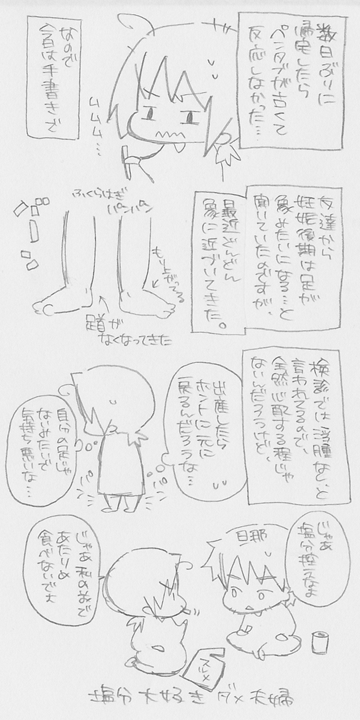 数日ぶりに
帰宅したら
ペンタブが古くて
反応しなかった…
なので
今日は手書きで
ムムム…
友達から
妊娠後期は足が
象みたいになる…と
聞いていたのですが、
最近どんどん
象に近づいてきた。
ふくらはぎ
パンパン
もり上がってる
踝が
なくなってきた
検診では浮腫なし、と
言われてるので、
全然心配する程じゃ
ないんだろうけど、
出産したら
ホントに元に
戻るんだろうな…
自分の足じゃ
ないみたいで
気持ち悪いな…
じゃあ
塩分控えなよ
旦那
じゃあ私の前で
あたりめ
食べないでよ
スルメ
塩分大好きダメ夫婦